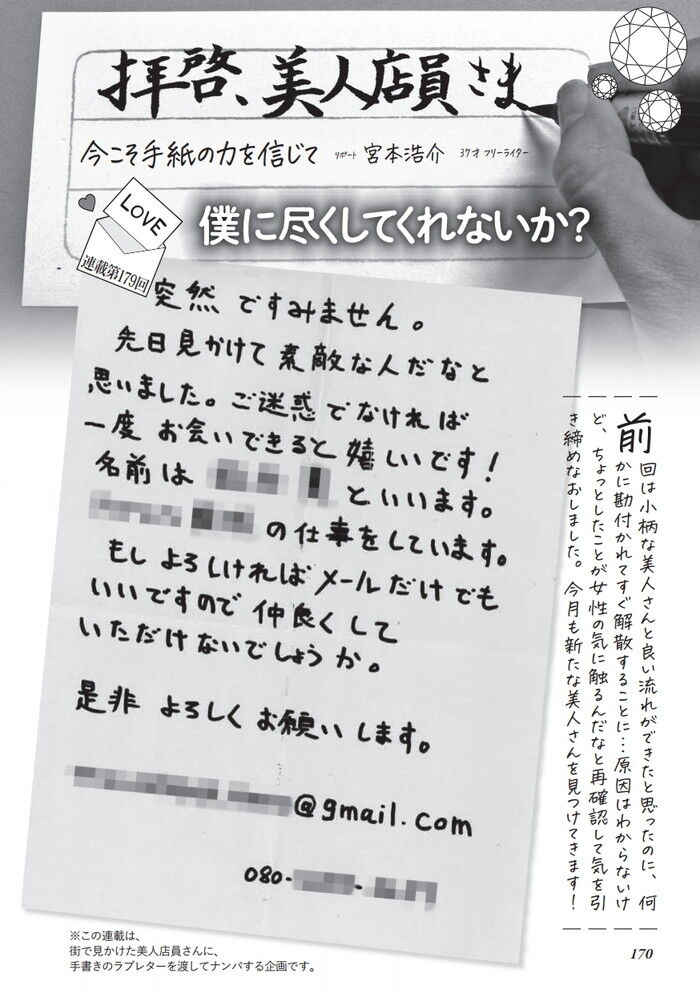 拝啓、美人店員さま
今こそ手紙の力を信じて リポート 宮本浩介 37才 フリーライター
LOVE
連載第179回
僕に尽くしてくれないか?
突然 ですみません。
先日見かけて 素敵な人だなと
思いました。ご迷惑 でなければ
一度 お会いできると 嬉しいです!
名前は
といいます。
の仕事をしています。
もし よろしければ メールだけでも
いいですので 仲良くして
いただけないでしょうか。
是非 よろしく お願いします。
@gmail.com
080-
前回は小柄な美人さんと良い流れができたと思ったのに、何
かに勘付かれてすぐ解散することに…原因はわからないけ
ど、ちょっとしたことが女性の気に触るんだなと再確認して気を引
き締めなおしました。今月も新たな美人さんを見つけてきます!
※この連載は、
街で見かけた美人店員さんに、
手書きのラブレターを渡してナンパする企画です。
170